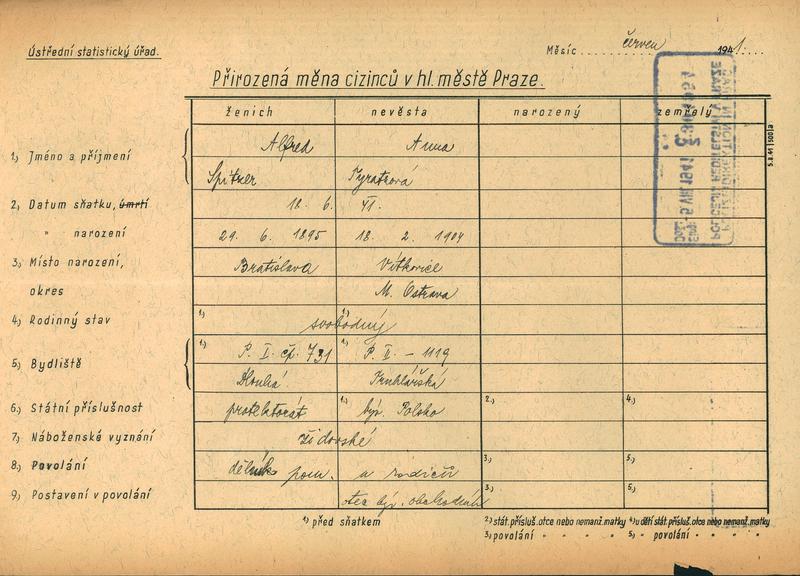 Ústřední statistický úřad.
Měsíc červen 1941.
Přirozená měna cizinců v hl. městě Praze.
ženich nevěsta narozený zemřelý
1.) Jméno a příjmení Alfred Anna
Spitzer
2.) Datum sňatku, úmrtí 18. 6. 41.
" narození 29. 6. 1895 18. 2. 1904
3.) Místo narození, Bratislava Vítkovice
okres M. Ostrava
4.) Rodinný stav 1.) svobodný 1.)
5.) Bydliště 1.) P. I. čp. 731 1.) P. II. – 1119
Dlouhá Truhlářská
6.) Státní příslušnost protektorát 1.) býv. Polsko 2.) 4.)
7.) Náboženské vyznání židovské
8.) Povolání dělník pom. u rodičů 3.) 5.)
9.) Postavení v povolání otec býv. obchodník 3.) 5.)
1.) před sňatkem
2.) stát. přísluš. otce nebo nemanž. matky
3.) povolání " " " "
4.) u dětí stát. přísluš. otce nebo nemanž. matky
5.) povolání " " " "